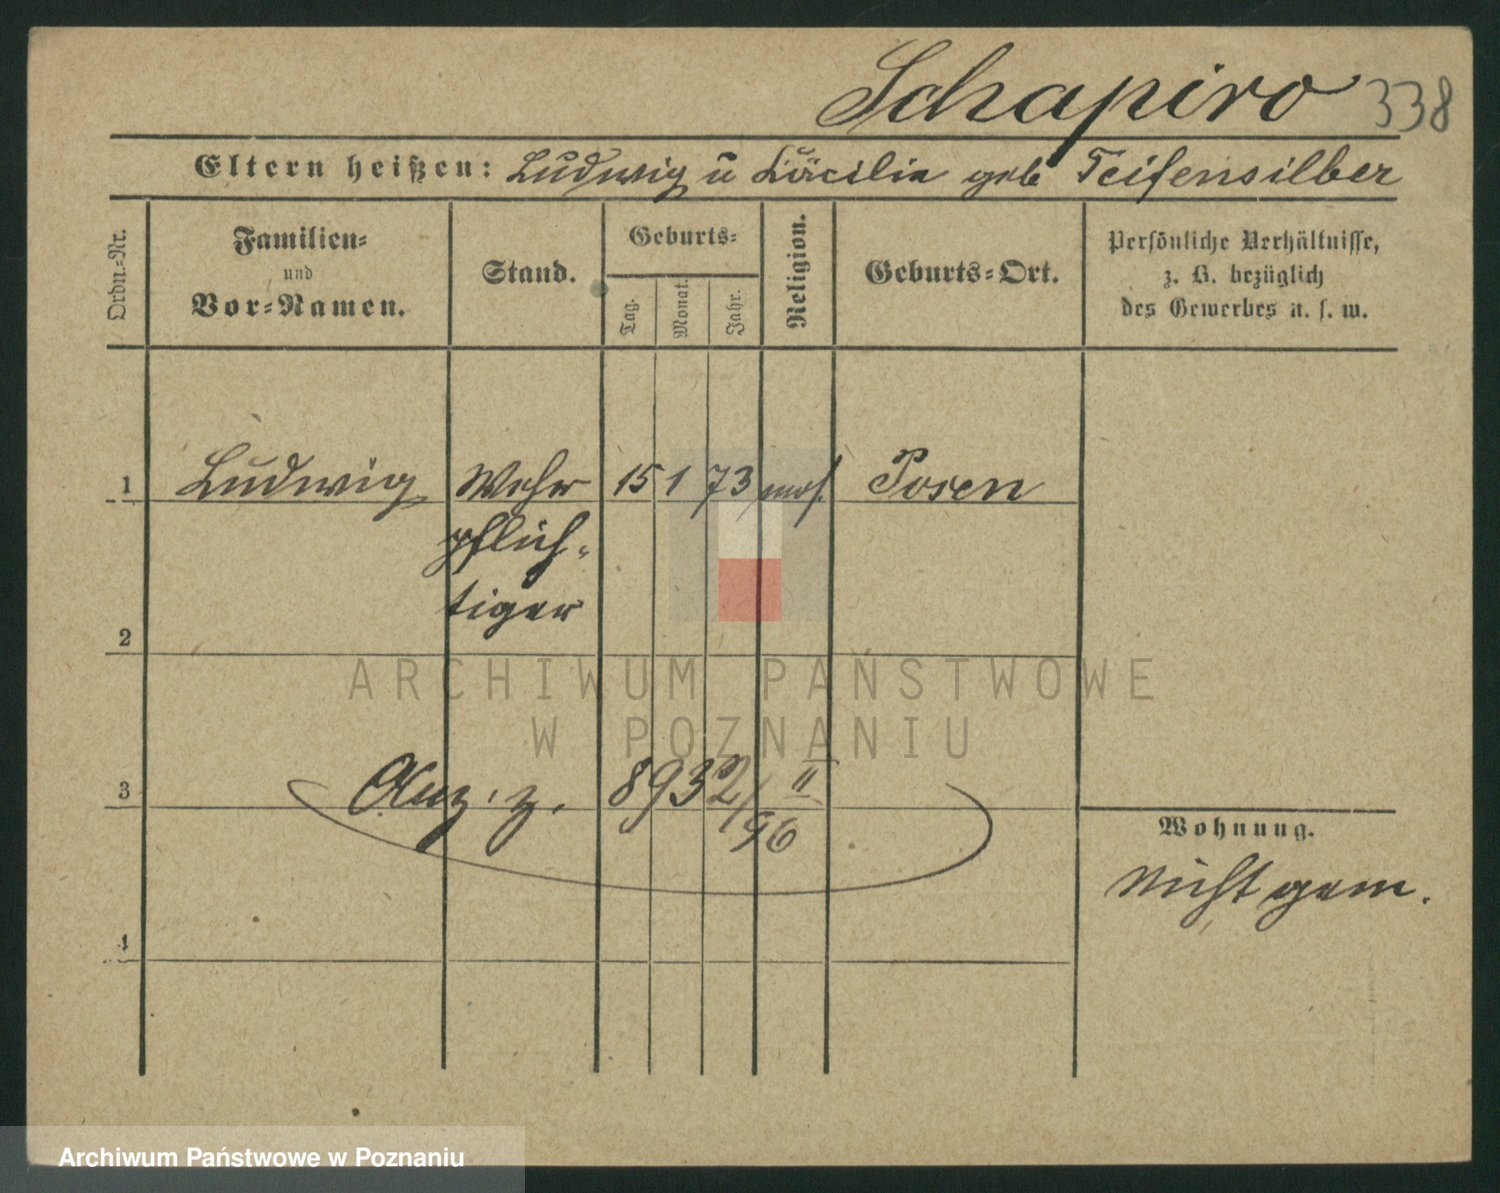 Schapiro 338
Eltern heißen: Ludwig u Cäcilia geb Teifensilber
Ordn.-Nr.
Familien-
und
Vor-Namen.
Stand.
Geburts-
Tag.
Monat.
Jahr.
Religion.
Geburts-Ort.
Persönliche Verhältnisse,
z. B. bezüglich
des Gewerbes u. s. w.
1 Ludwig Wehr 15 1 73 mos. Posen
pflich-
tiger
2
ARCHIWUM PAŃSTWOWE
W POZNANIU
3 8932/II
96
Wohnung.
nicht gem.
4
Archiwum Państwowe w Poznaniu